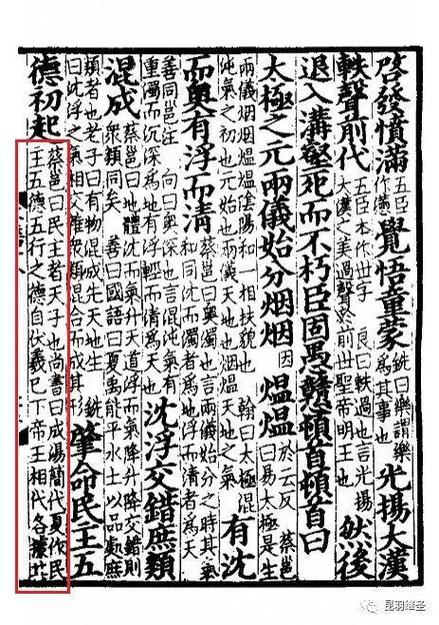 啓發憤滿五臣作懣覺悟童蒙銑曰樂謂樂為其事也光揚大漢
軼聲前代五臣本作世字 良曰軼過也言光揚大漢之美過聲於前世聖帝明王也然後
退入溝壑死而不朽臣固愚戇頓首頓首曰
太極之元兩儀始分烟烟因熅熅於云反 蔡邕曰易太極是生
兩儀烟烟熅熅陰陽和一相扶貌也 翰曰太極混沌氣之初也元始也兩儀天地也烟烟熅熅天地之氣有沈
而奧有浮而清蔡邕曰奧濁也言兩儀始分之時其氣和同沈而濁者為地浮而清者為天
善同邕注 向曰奧深也言混沌氣有重濁而沉深為地有浮輕而清為天也沈浮交錯庶類
混成蔡邕曰地體沈而氣升天道浮而氣降升降交錯則衆類同矣 善曰國語曰夏禹能平水土以品處庶
類者也老子曰有物混成先天地生 銑曰沈浮之氣相交雜衆類混合而成其形肇命民主五
德初起蔡邕曰民主者天子也尚書曰成湯簡代夏作民王五德五行之德自伏羲已下帝王相代各據其
昆羽继圣